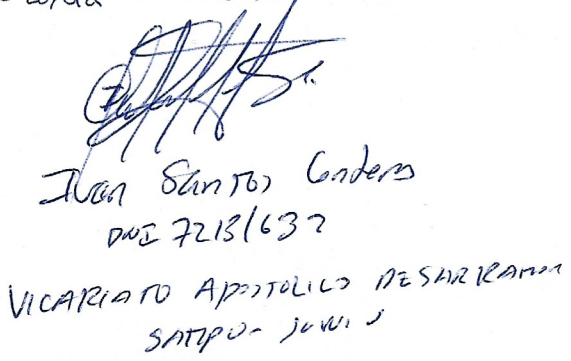 Ivan Santos Cordero
DNI 72131632
VICARIATO APOSTOLICO DE SAN RAMON
SATIPO - JUNIN